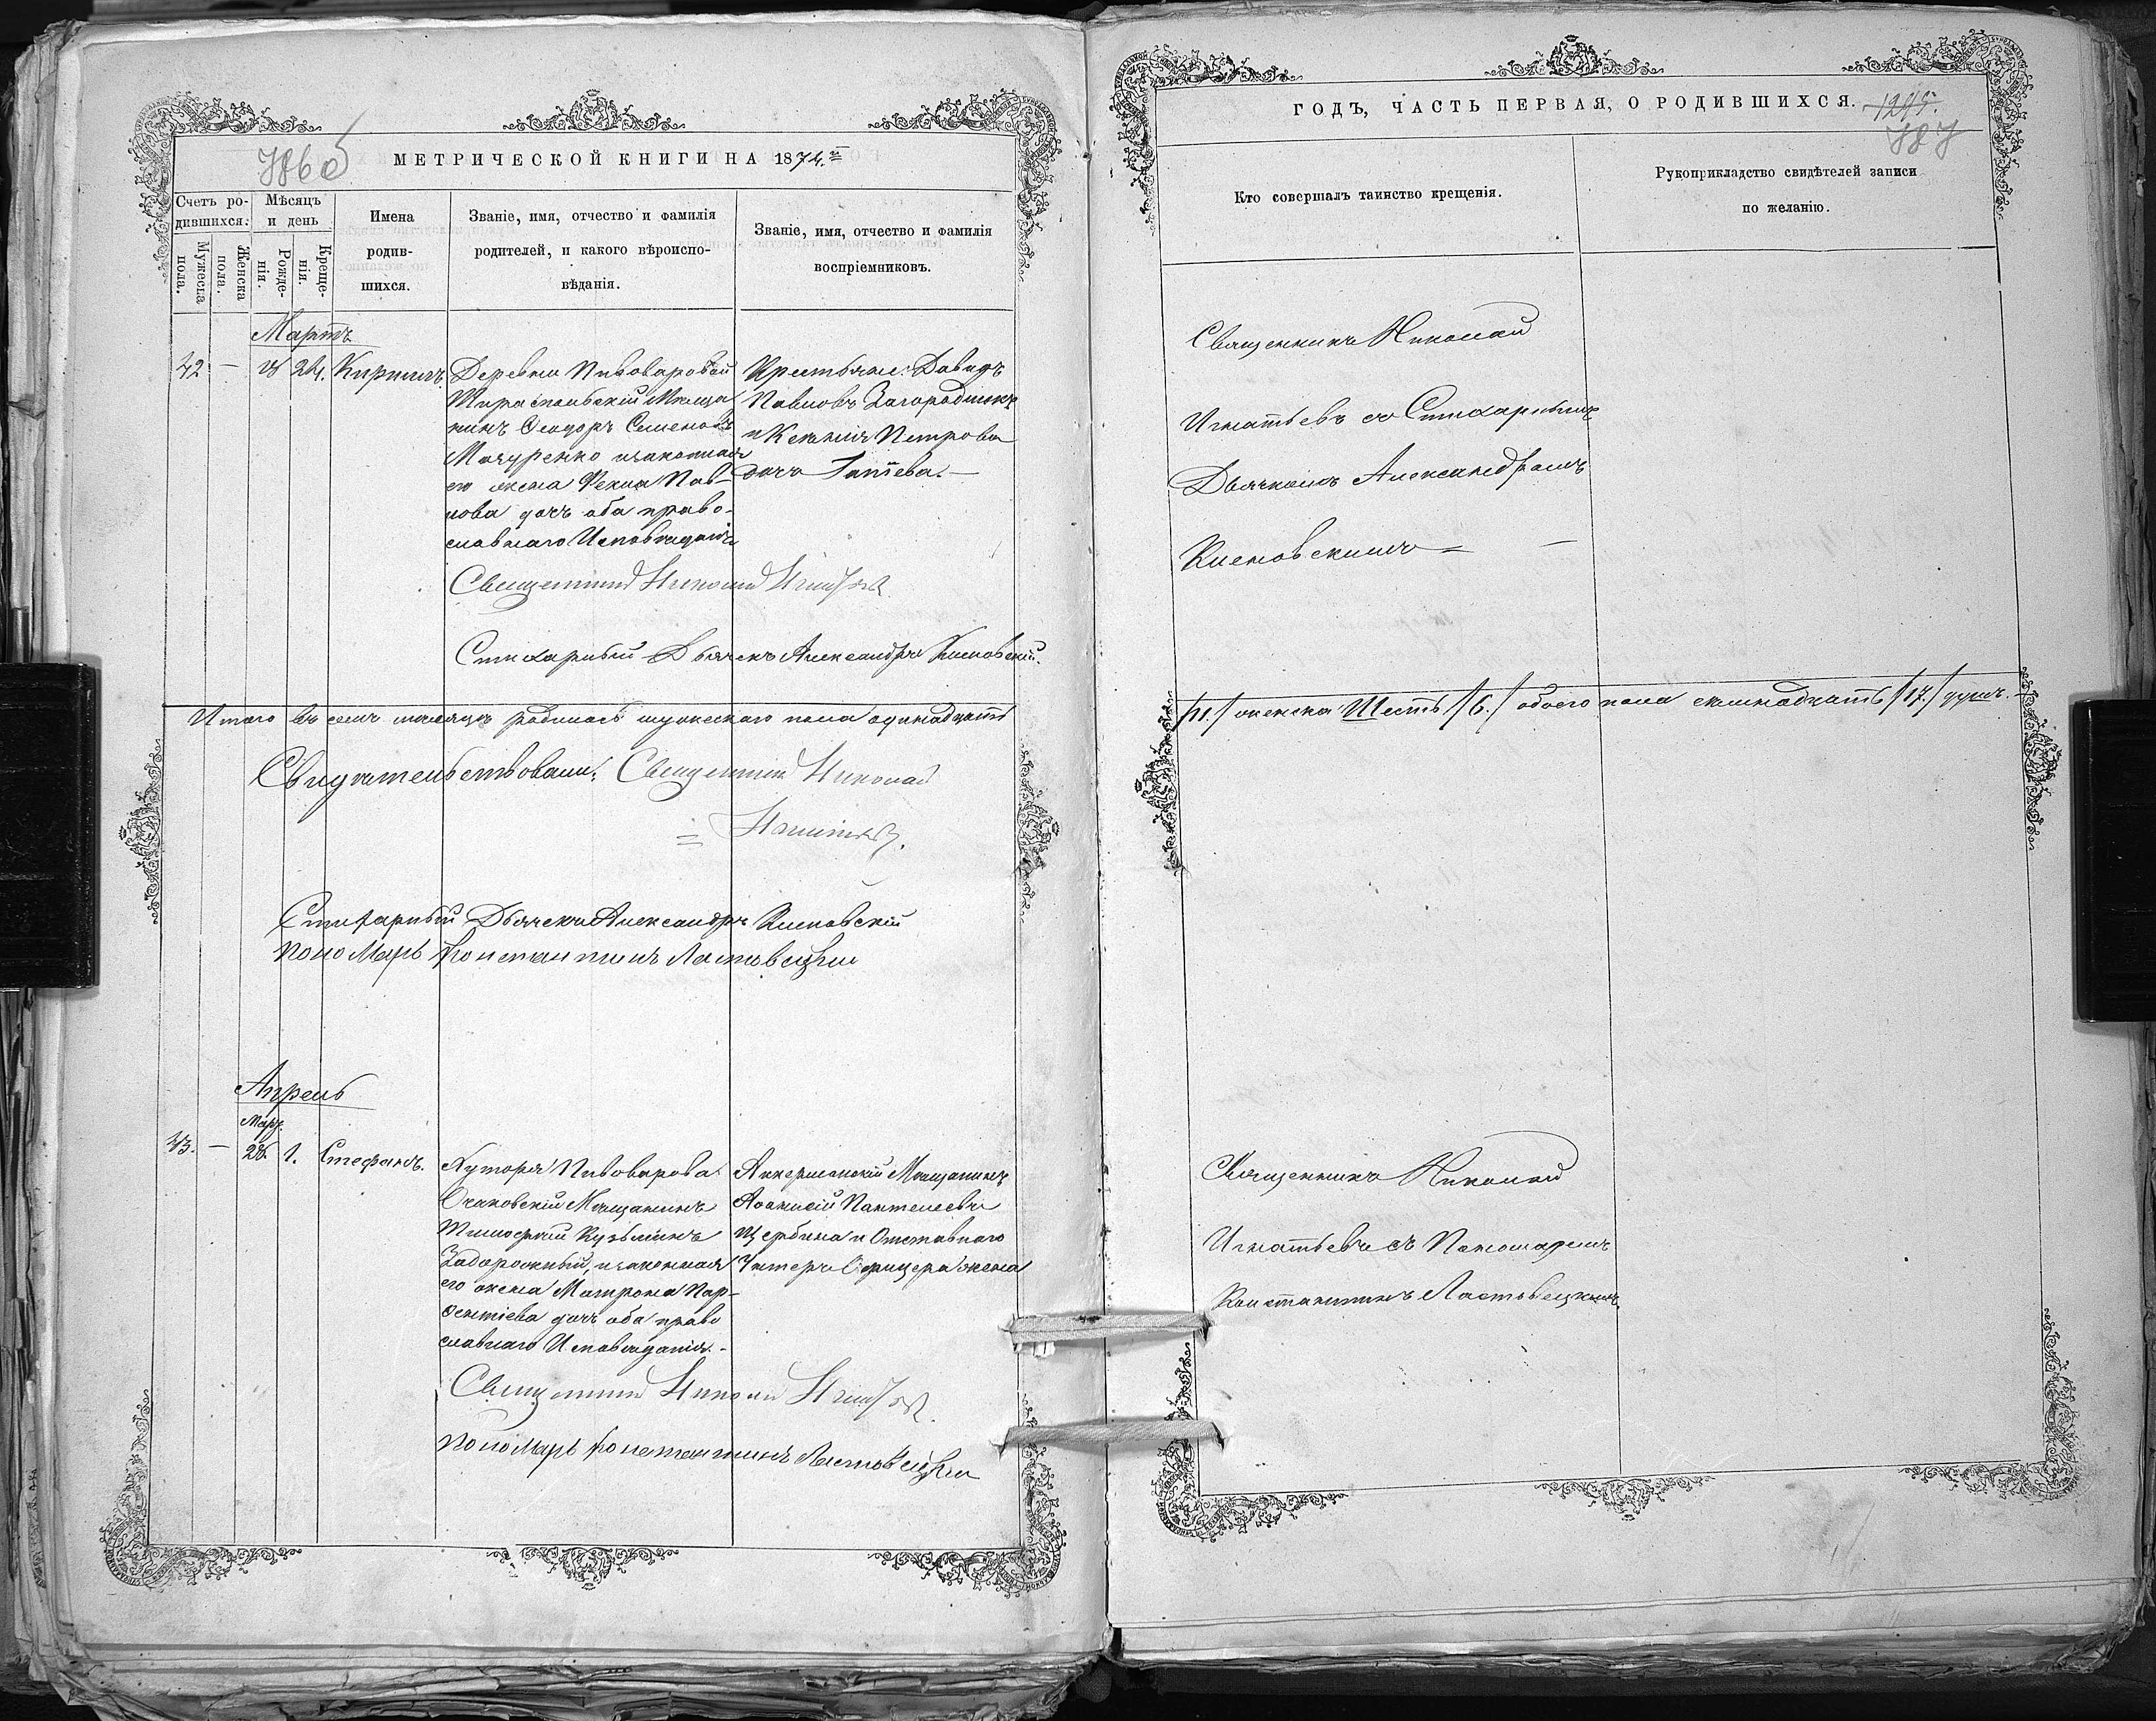 786 об
МЕТРИЧЕСКОЙ КНИГИ НА 1874.й
Счетъ ро-
дившихся.
Мѣсяцъ
и день
Имена
родив-
шихся.
Званіе, имя, отчество и фамилія
родителей, и какого вѣроиспо-
вѣданія.
Званіе, имя, отчество и фамилія
воспріемниковъ.
Мужеска
пола.
Женска
пола.
Рожде-
нія.
Креще-
нія.
Мартъ
42 — 24. Кириллъ.
Деревни Пивоваровой
Тираспольскій Мѣща
нинъ Ѳеодоръ Семеновъ
Мазуренко и законная
его жена Фекла Пав-
лова дочь оба право-
славнаго Исповѣданія
Крестьяне: Давидъ
Павловъ Загороднюкъ
и Ксенія Петрова
дочь
Священникъ Николай Игнатьевъ
Стихарный Дьячекъ Александръ Кисновскій.
Итого въ семъ мѣсяцѣ родилось мужескаго пола одинадцать
Свидѣтельствовали: Священникъ Николай
Игнатьевъ.
Стихарный Дьячекъ Александръ Кисновскій
Пономарь Константинъ Ластовецкій
Апрель
Мар.
43. — 28. 1. Стефанъ.
Хутора Пивоварова
Очаковскій Мѣщанинъ
Тимофей Кузьминъ
Задорожный, и законная
его жена Матрона Пар-
ѳентіева дочь оба право
славнаго Исповѣданія.-
Аккерманскій Мѣщанинъ
Аѳанасій Пантелеевъ
Щербина и Отставнаго
Унтеръ Офицера жена
Священникъ Николай Игнатьевъ.
Пономарь Константинъ Ластовецкій
ГОДЪ, ЧАСТЬ ПЕРВАЯ, О РОДИВШИХСЯ.
787
Кто совершалъ таинство крещенія.
Рукоприкладство свидѣтелей записи
по желанію.
Священникъ Николай
Игнатьевъ со Стихарнымъ
Дьячкомъ Александромъ
Кисновскимъ
/11./ женска Шесть /6./ обоего пола семнадцать /17./ душъ.
Священникъ Николай
Игнатьевъ съ Пономаремъ
Константинъ Ластовецкимъ